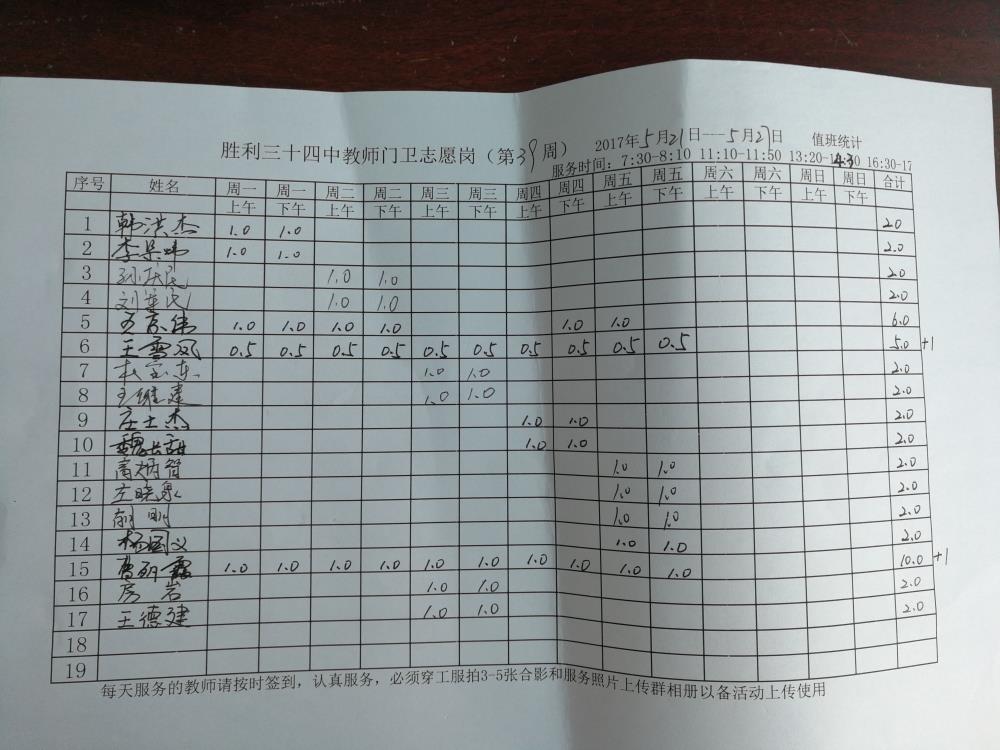 胜利三十四中教师门卫志愿岗（第39周） 2017年5月21日---5月27日 值班统计
服务时间：7:30-8:10 11:10-11:50 13:20-14:30 16:30-17
序号 姓名 周一 周一 周二 周二 周三 周三 周四 周四 周五 周五 周六 周六 周日 周日 合计
上午 下午 上午 下午 上午 下午 上午 下午 上午 下午 上午 下午 上午 下午
1 韩洪杰 1.0 1.0 2.0
2 李 1.0 1.0 2.0
3 孙庆民 1.0 1.0 2.0
4 刘 民 1.0 1.0 2.0
5 王京伟 1.0 1.0 1.0 1.0 1.0 1.0 6.0
6 王雪凤 0.5 0.5 0.5 0.5 0.5 0.5 0.5 0.5 0.5 0.5 5.0 +1
7 杜宝东 1.0 1.0 2.0
8 王维建 1.0 1.0 2.0
9 庄士杰 1.0 1.0 2.0
10 1.0 1.0 2.0
11 高炳智 1.0 1.0 2.0
12 左晓泉 1.0 1.0 2.0
13 胡刚 1.0 1.0 2.0
14 杨国义 1.0 1.0 2.0
15 1.0 1.0 1.0 1.0 1.0 1.0 1.0 1.0 1.0 1.0 10.0 +1
16 房岩 1.0 1.0 2.0
17 王德建 1.0 1.0 2.0
18
19
每天服务的教师请按时签到，认真服务，必须穿工服拍3-5张合影和服务照片上传群相册以备活动上传使用